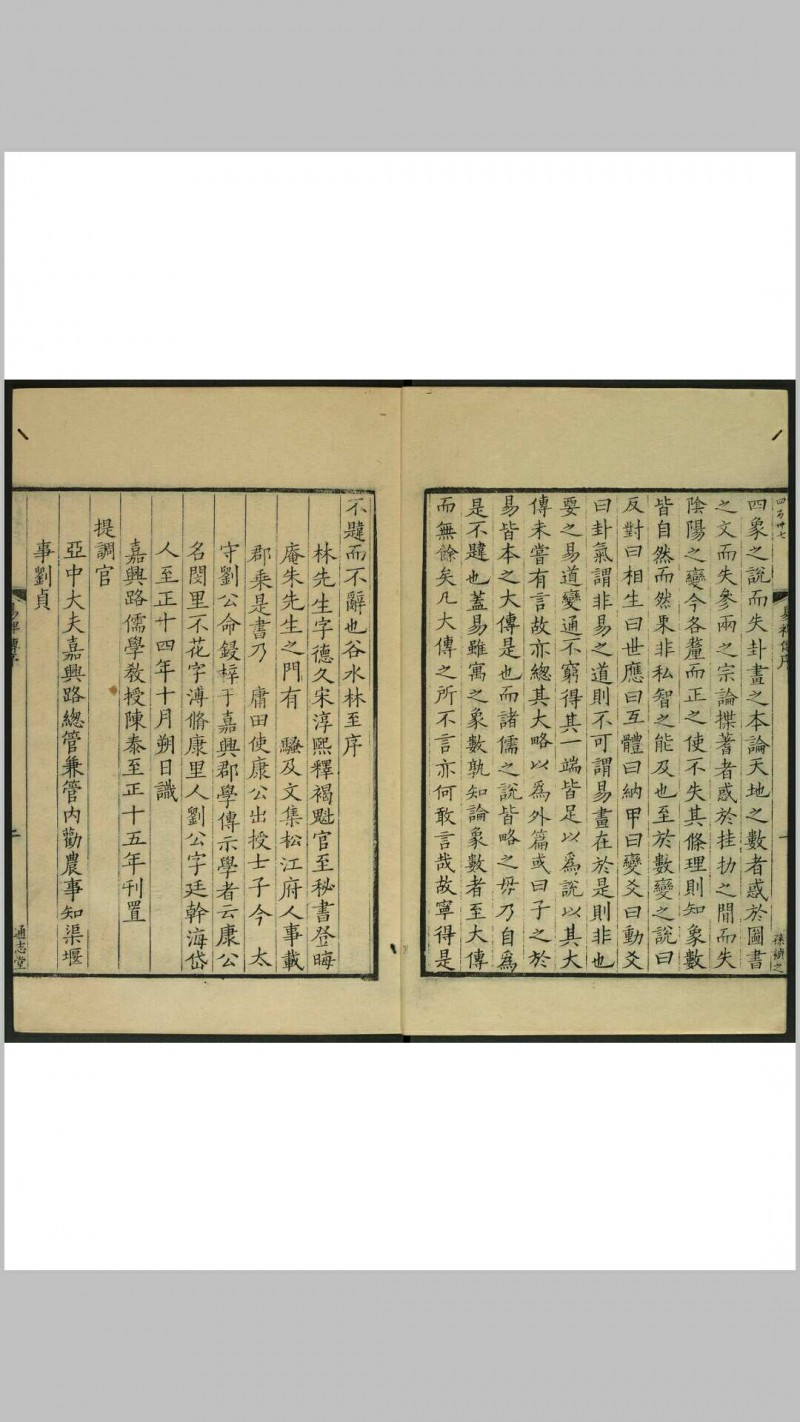 四百廿七
易稗傳序
一
四象之說而失卦畫之本論天地之數者惑於圖書
之文而失參兩之宗論揲蓍者惑於挂扐之閒而失
陰陽之變今各釐而正之使不失其條理則知象數
皆自然而然果非私智之能及也至於數變之說曰
反對曰相生曰世應曰互體曰納甲曰變爻曰動爻
曰卦氣謂非易之道則不可謂易盡在於是則非也
要之易道變通不窮得其一端皆足以為說以其大
傳未嘗有言故亦總其大略以為外篇或曰子之於
易皆本之大傳是也而諸儒之說皆略之毋乃自為
是不韙也蓋易雖寓之象數孰知論象數者至大傳
而無餘矣凡大傳之所不言亦何敢言哉故寧得是
不韙而不辭也谷水林至序
林先生字德久宋淳熙釋褐魁官至秘書登晦
庵朱先生之門有 騷及文集松江府人事載
郡乘是書乃 庸田使康公出授士子今 太
守劉公命鋟梓于嘉興郡學傳示學者云康公
名閔里不花字溥脩康里人劉公字廷幹海岱
人至正十四年十月朔日識
嘉興路儒學教授陳泰至正十五年刊置
提調官
亞中大夫嘉興路總管兼管內勸農事知渠堰
事劉貞
二
通志堂